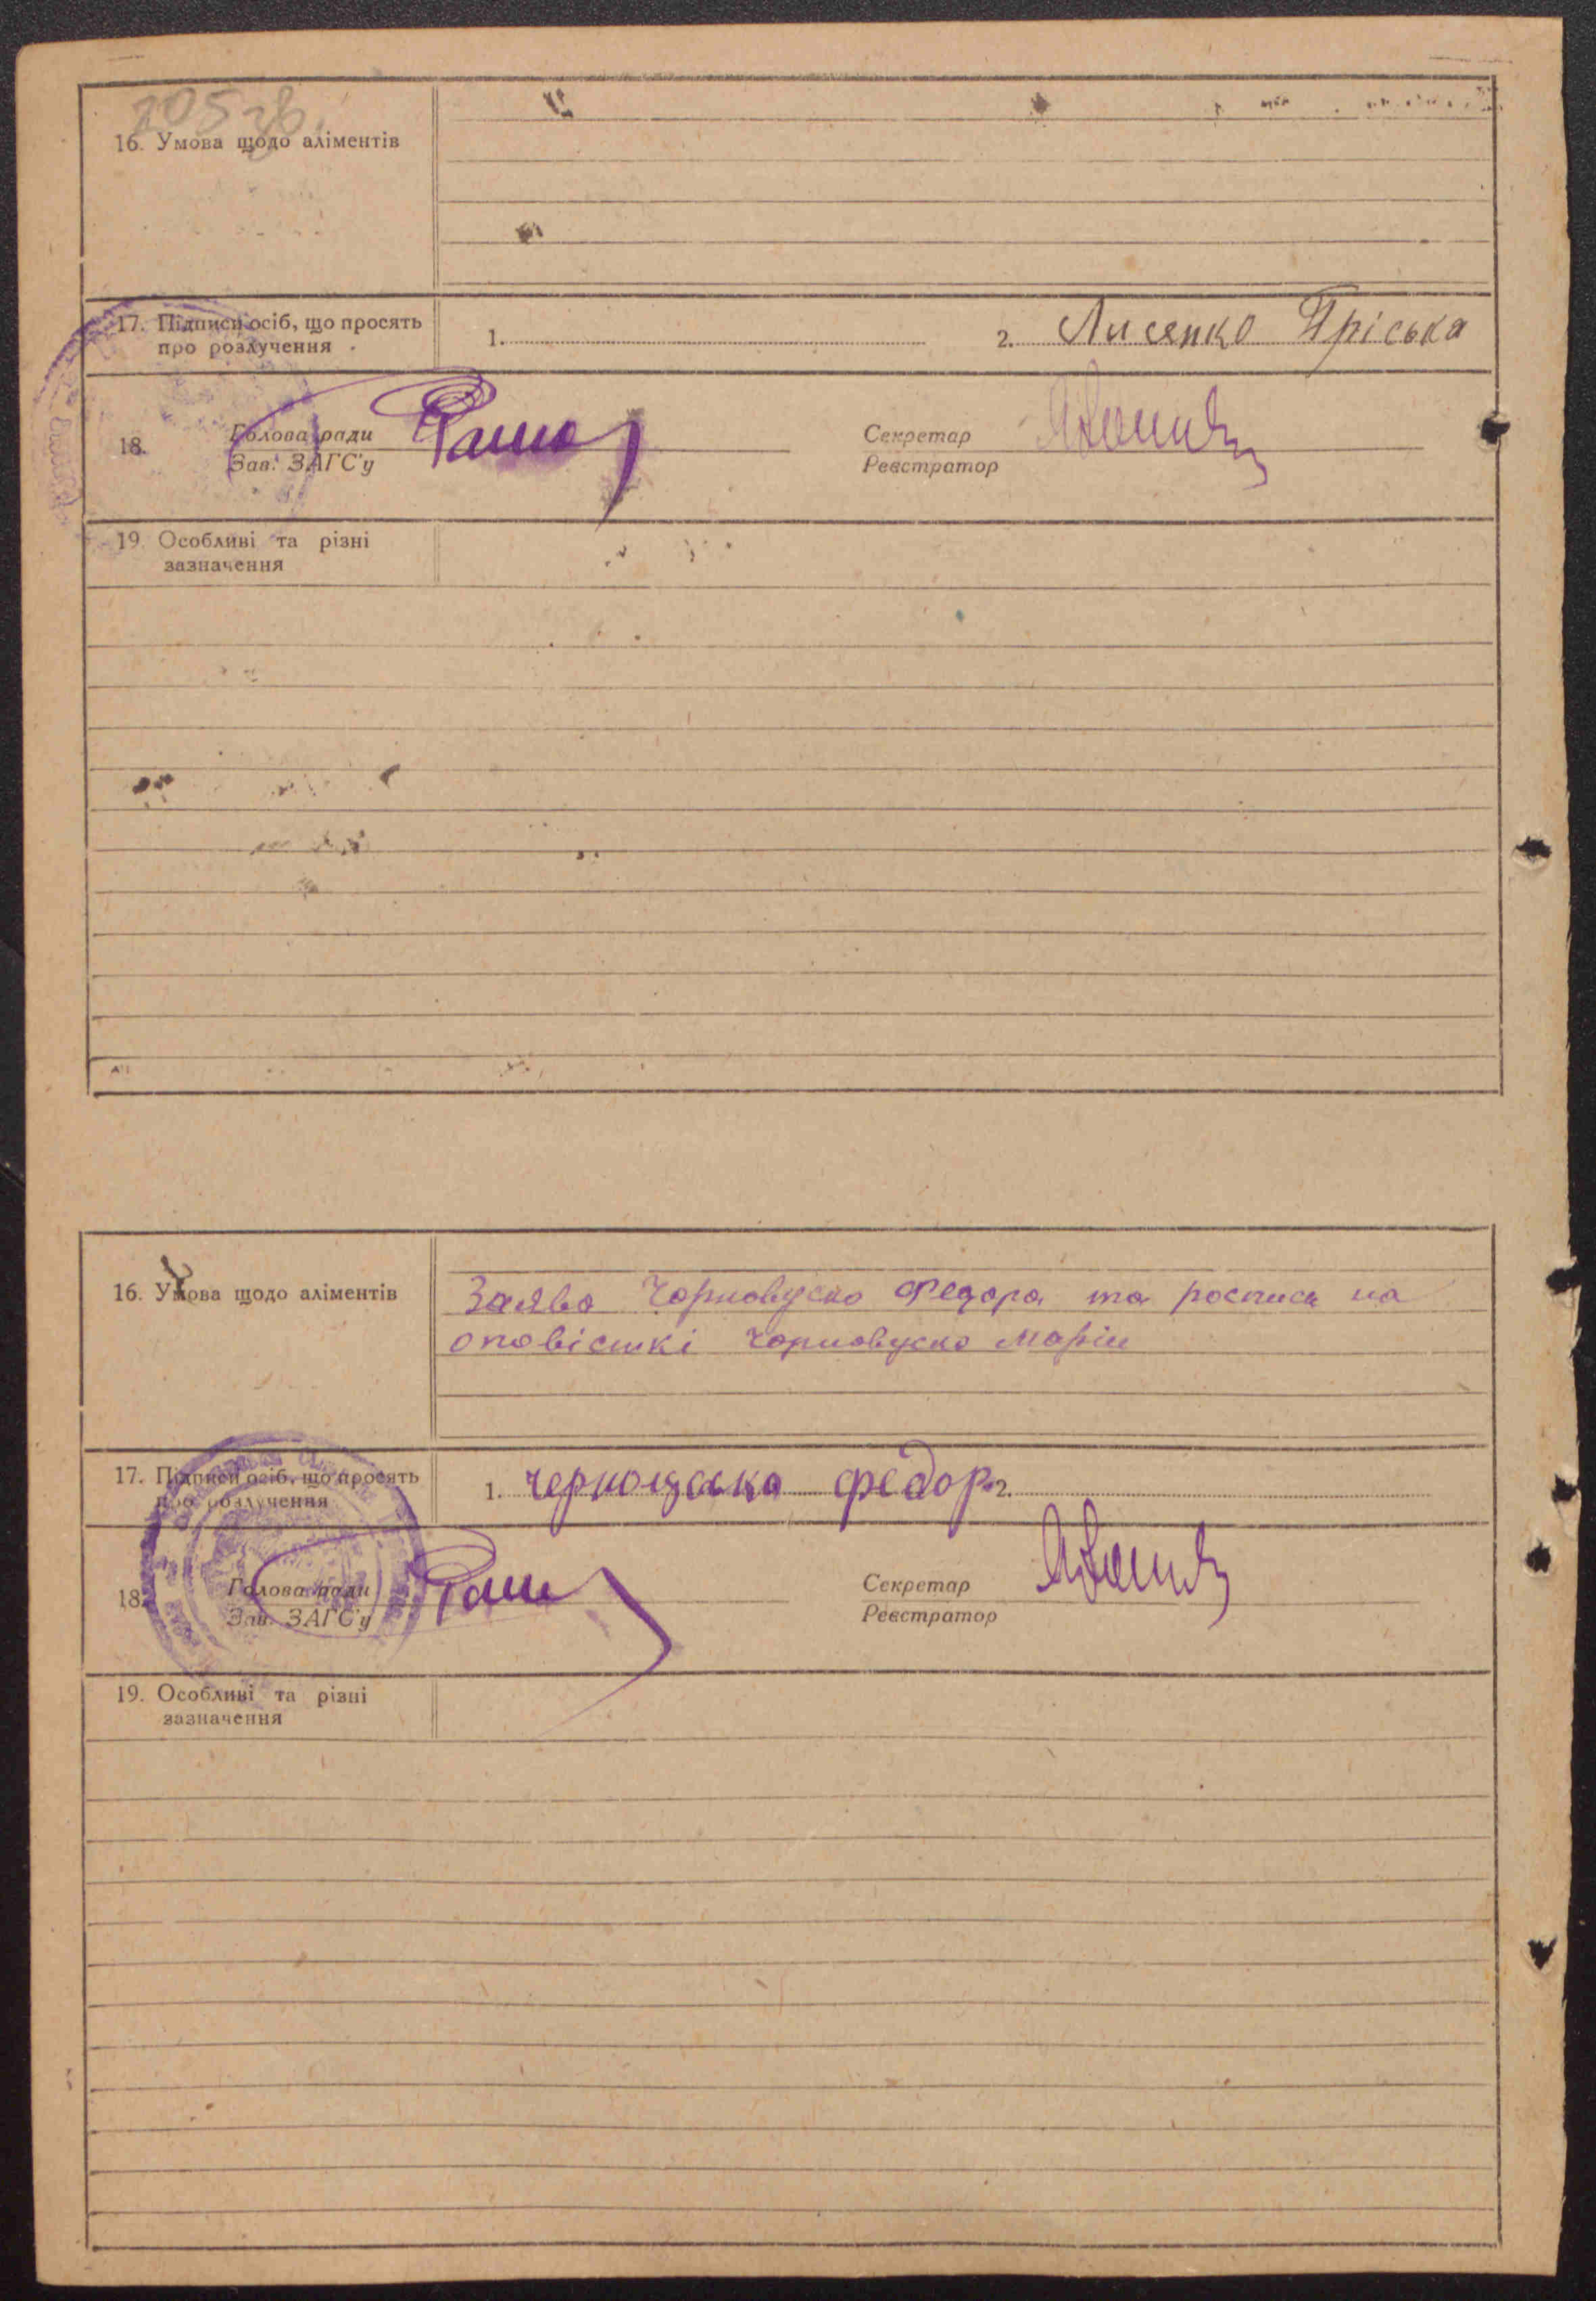 205 зв.
16. Умова щодо аліментів
17. Підписи осіб, що просять
про розлучення
1. 2. Лисенко Пріська
18. Голова ради
Зав. ЗАГС'у
Секретар
Реєстратор
19. Особливі та різні
зазначення
16. Умова щодо аліментів
Заява Чорновуско Федора та росписи на
оповісткі Чорновуско Марии
17. Підписи осіб, що просять
про розлучення
1. федор 2.
18. Голова ради
Зав. ЗАГС'у
Секретар
Реєстратор
19. Особливі та різні
зазначення